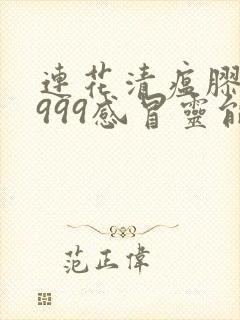 連花清瘟膠
999感冒靈能
范正偉